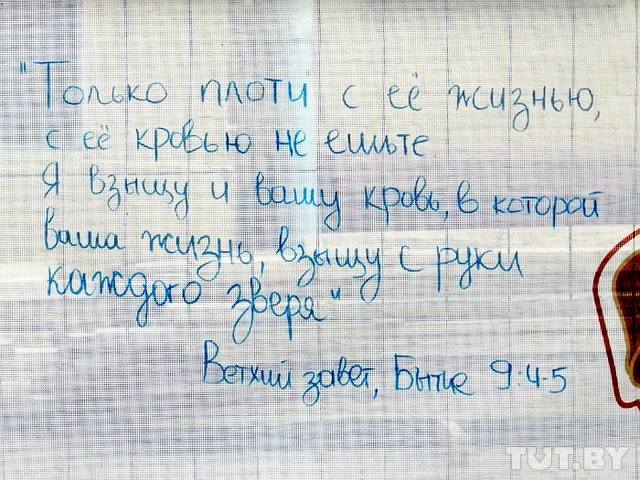 "Только плоти с её жизнью,
с её кровью не ешьте.
Я взыщу и вашу кровь, в которой
ваша жизнь, взыщу с руки
каждого зверя"
Ветхий завет, Бытие 9:4-5
TUT.BY